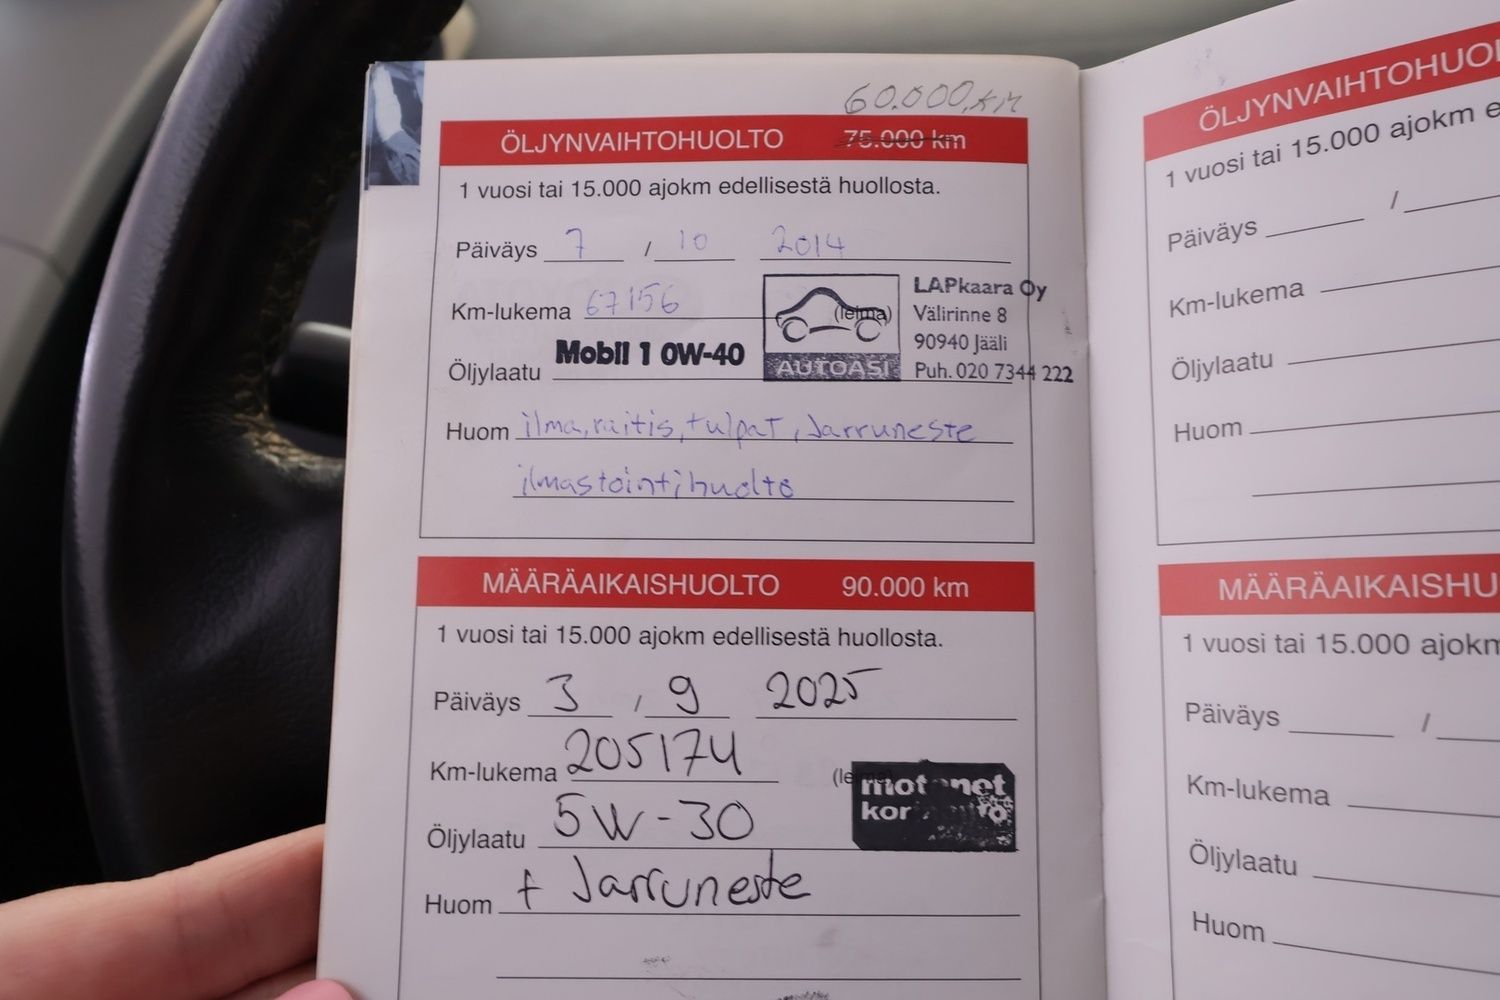 60.000,km
ÖLJYNVAIHTOHUOLTO 75.000 km
1 vuosi tai 15.000 ajokm edellisestä huollosta.
Päiväys 7 / 10 2014
Km-lukema 67156 (leima)
Öljylaatu Mobil 1 0W-40
AUTOASI
LAPkaara Oy
Välirinne 8
90940 Jääli
Puh. 020 7344 222
Huom ilma, raitis, tulpat, Jarruneste
ilmastointihuolto
MÄÄRÄAIKAISHUOLTO 90.000 km
1 vuosi tai 15.000 ajokm edellisestä huollosta.
Päiväys 3 / 9 2025
Km-lukema 205174
motonet
Öljylaatu 5W-30
Huom + Jarruneste
ÖLJYNVAIHTOHUO
1 vuosi tai 15.000 ajokm e
Päiväys /
Km-lukema
Öljylaatu
Huom
MÄÄRÄAIKAISHU
1 vuosi tai 15.000 ajokm
Päiväys /
Km-lukema
Öljylaatu
Huom